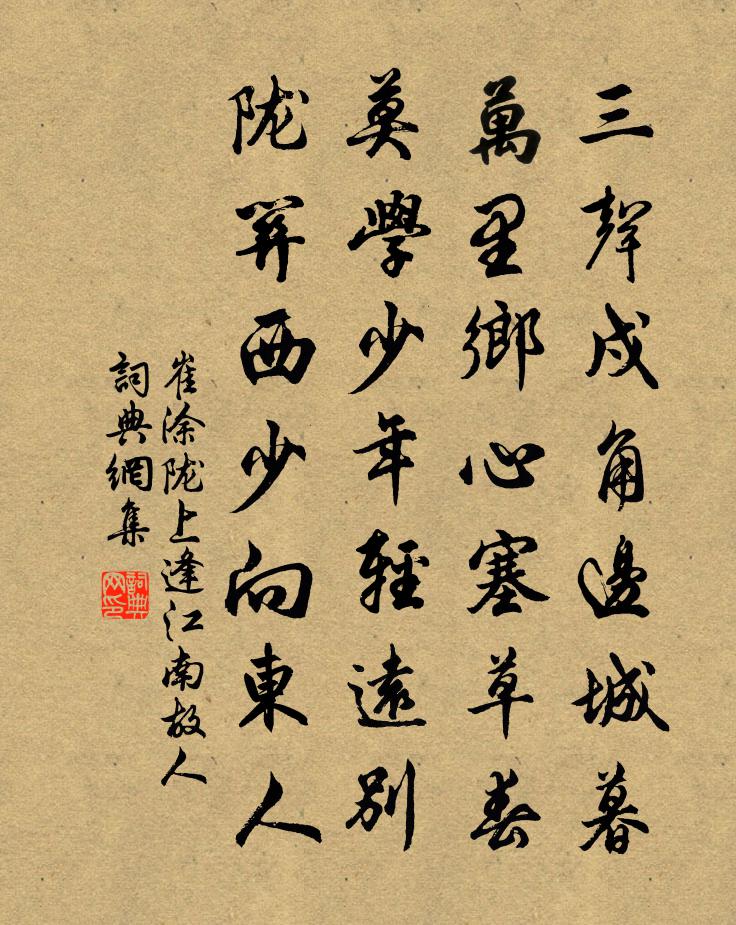 三聲戍角邊城暮
萬里鄉心塞草春
莫學少年輕遠別
陇關西少向東人
崔涂陇上逢江南故人
詞典網集
詞典网印